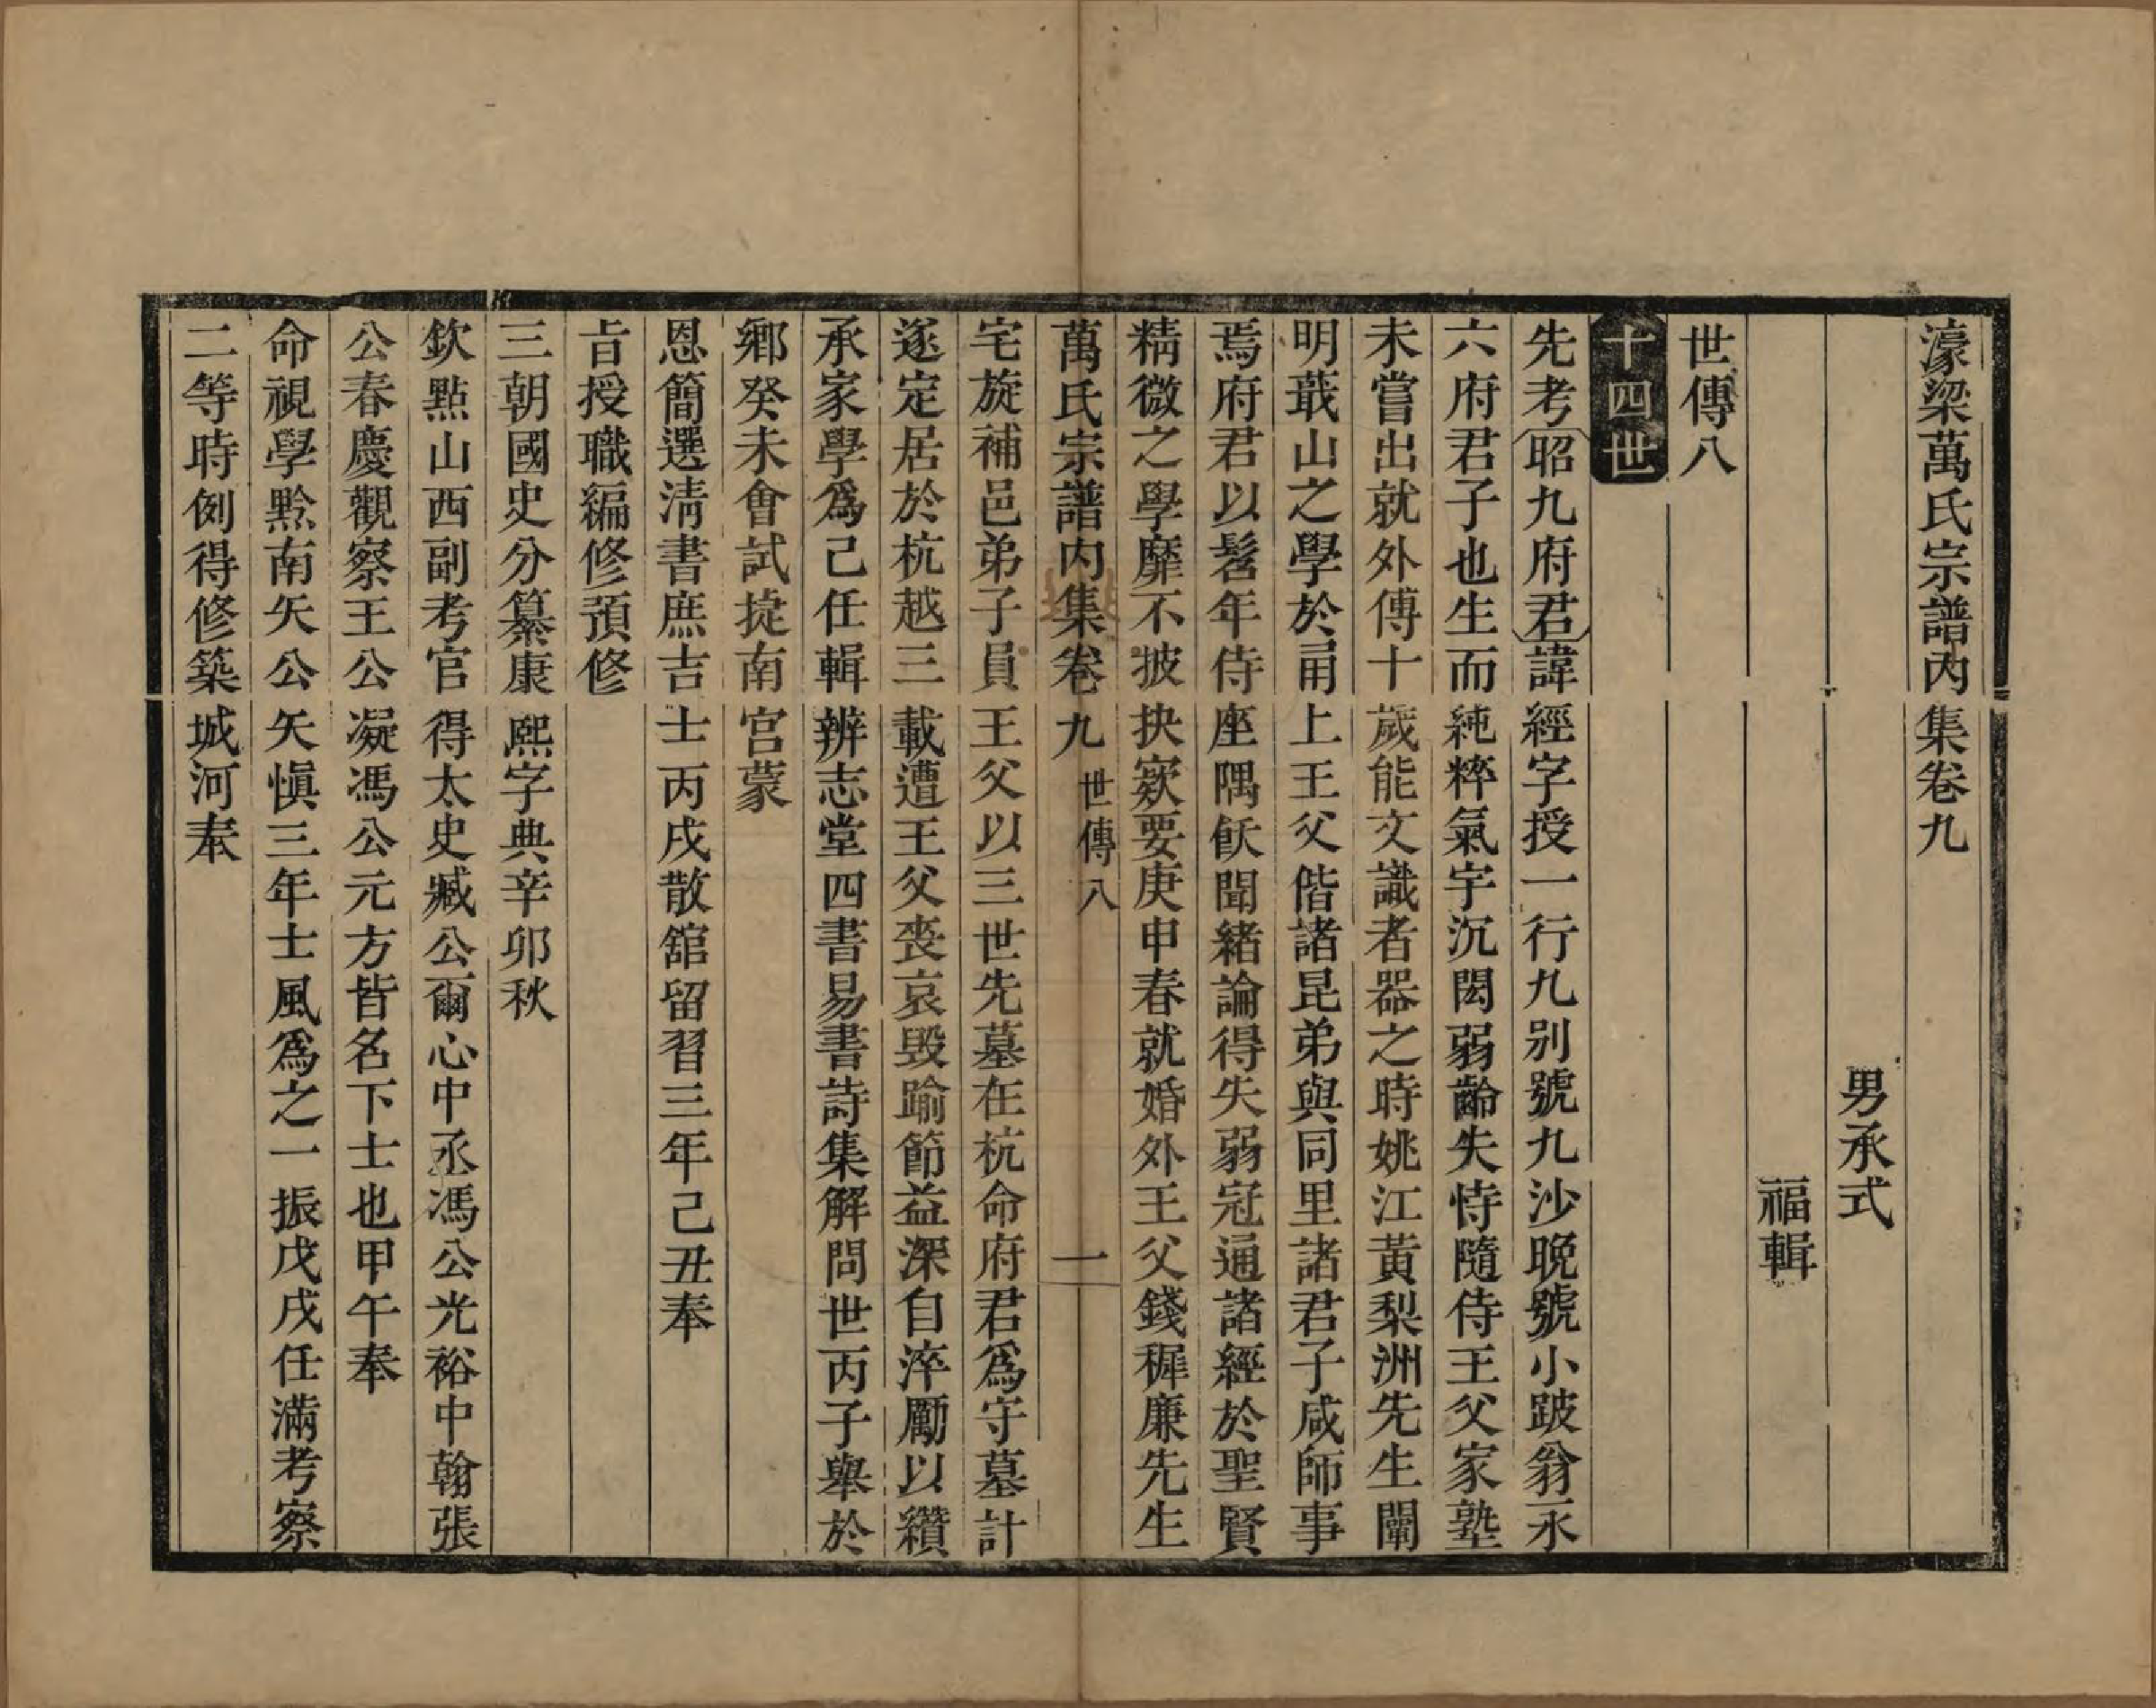 濠梁萬氏宗譜內集卷九
男承式
福輯
世傳八
十四世
先考昭九府君諱經字授一行九別號九沙晚號小跛翁永
六府君子也生而純粹氣宇沉閎弱齡失恃隨侍王父家塾
未嘗出就外傅十歲能文識者器之時姚江黃梨洲先生闡
明蕺山之學於甬上王父偕諸昆弟與同里諸君子咸師事
焉府君以髫年侍座隅飫聞緒論得失弱冠通諸經於聖賢
精微之學靡不披抉窾要庚申春就婚外王父錢穉廉先生
萬氏宗譜內集卷九 世傳八 一
宅旋補邑弟子員王父以三世先墓在杭命府君爲守墓計
遂定居於杭越三載遭王父喪哀毀踰節益深自淬厲以纘
承家學爲己任輯辨志堂四書易書詩集解問世丙子舉於
鄉癸未會試捷南宮蒙
恩簡選清書庶吉士丙戌散舘留習三年己丑奉
旨授職編修預修
三朝國史分纂康熙字典辛卯秋
欽點山西副考官得太史臧公爾心中丞馮公光裕中翰張
公春慶觀察王公凝馮公元方皆名下士也甲午奉
命視學黔南矢公矢愼三年士風爲之一振戊戌任滿考察
二等時例得修築城河奉